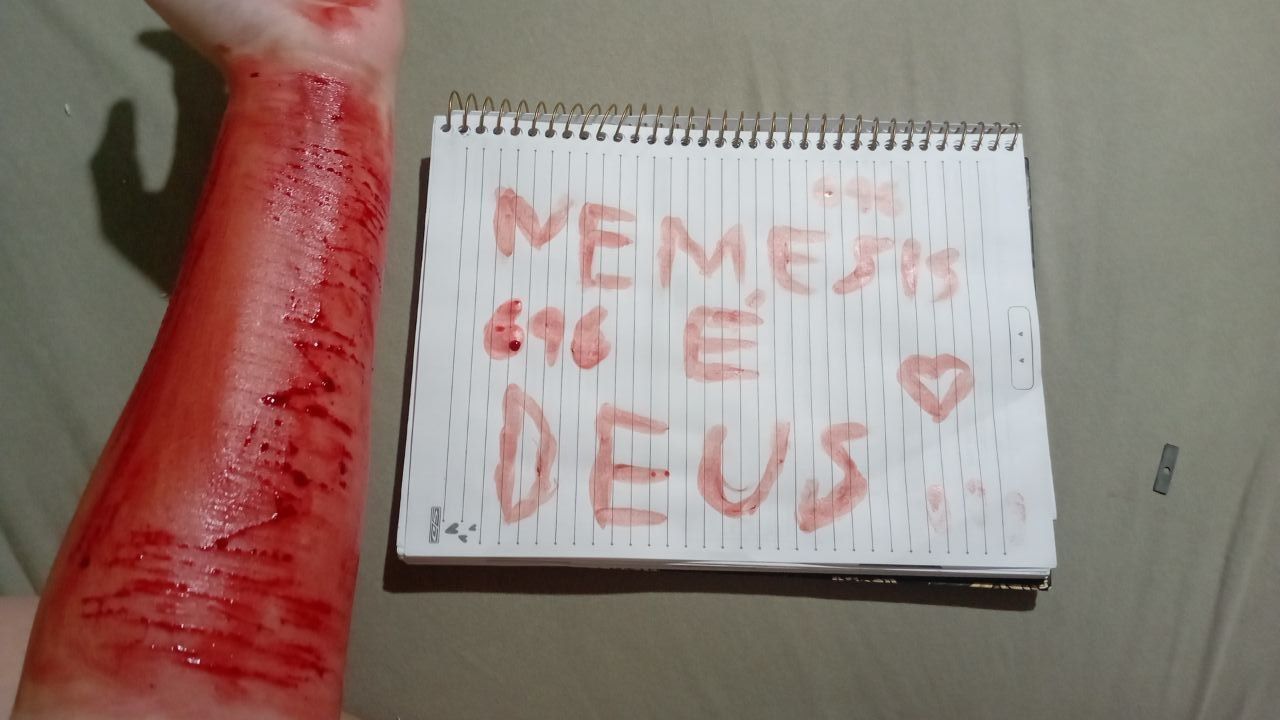 NEMESIS
696 É
DEUS